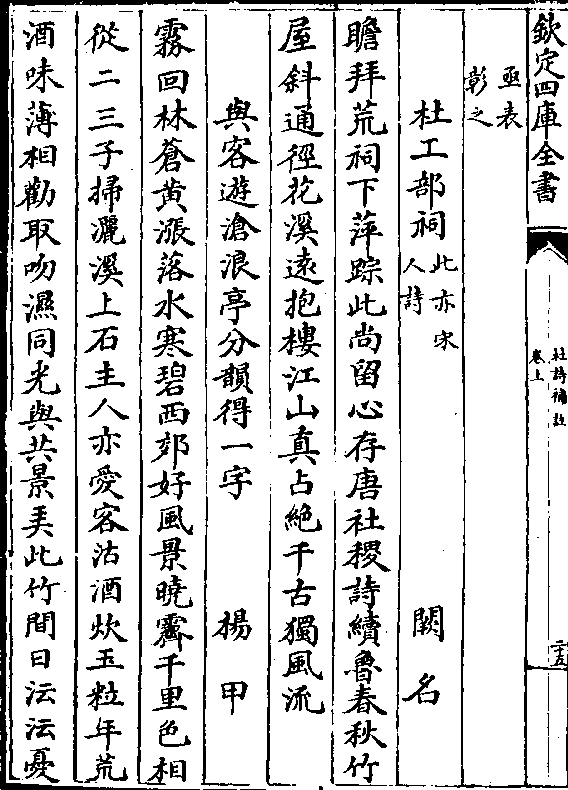 欽定四庫全書
杜詩補註
卷上
二十五
亟表
彰之
杜工部祠 此亦宋人詩 闕名
瞻拜荒祠下萍踪此尚留心存唐社稷詩續魯春秋竹
屋斜通徑花溪遠抱樓江山真占絶千古獨風流
與客遊滄浪亭分韻得一字 楊甲
霧回林蒼黄漲落水寒碧西郊好風景曉霽千里色相
從二三子掃灑溪上石主人亦愛客沽酒炊玉粒年荒
酒味薄相勸取吻濕同光與共景美此竹間日沄沄憂